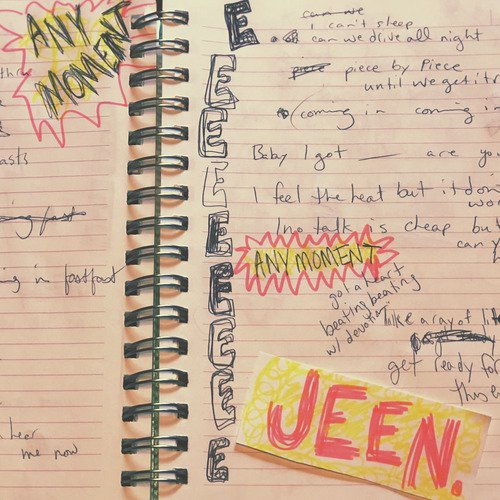 ANY
MOMENT
asts
in fastfast
hear
me now
E
E
E
E
E
E
E
E
E
E
can we
i can't sleep
can we drive all night
piece by Piece
until we get it
(coming in coming i
Baby I got ___ are yo
I feel the heat but it don
wo
no talk is cheap but
can y
ANY MOMENT
got a heart
beating beating
w/ devotion
Take a ray of li
get ready for
this e
JEEN.